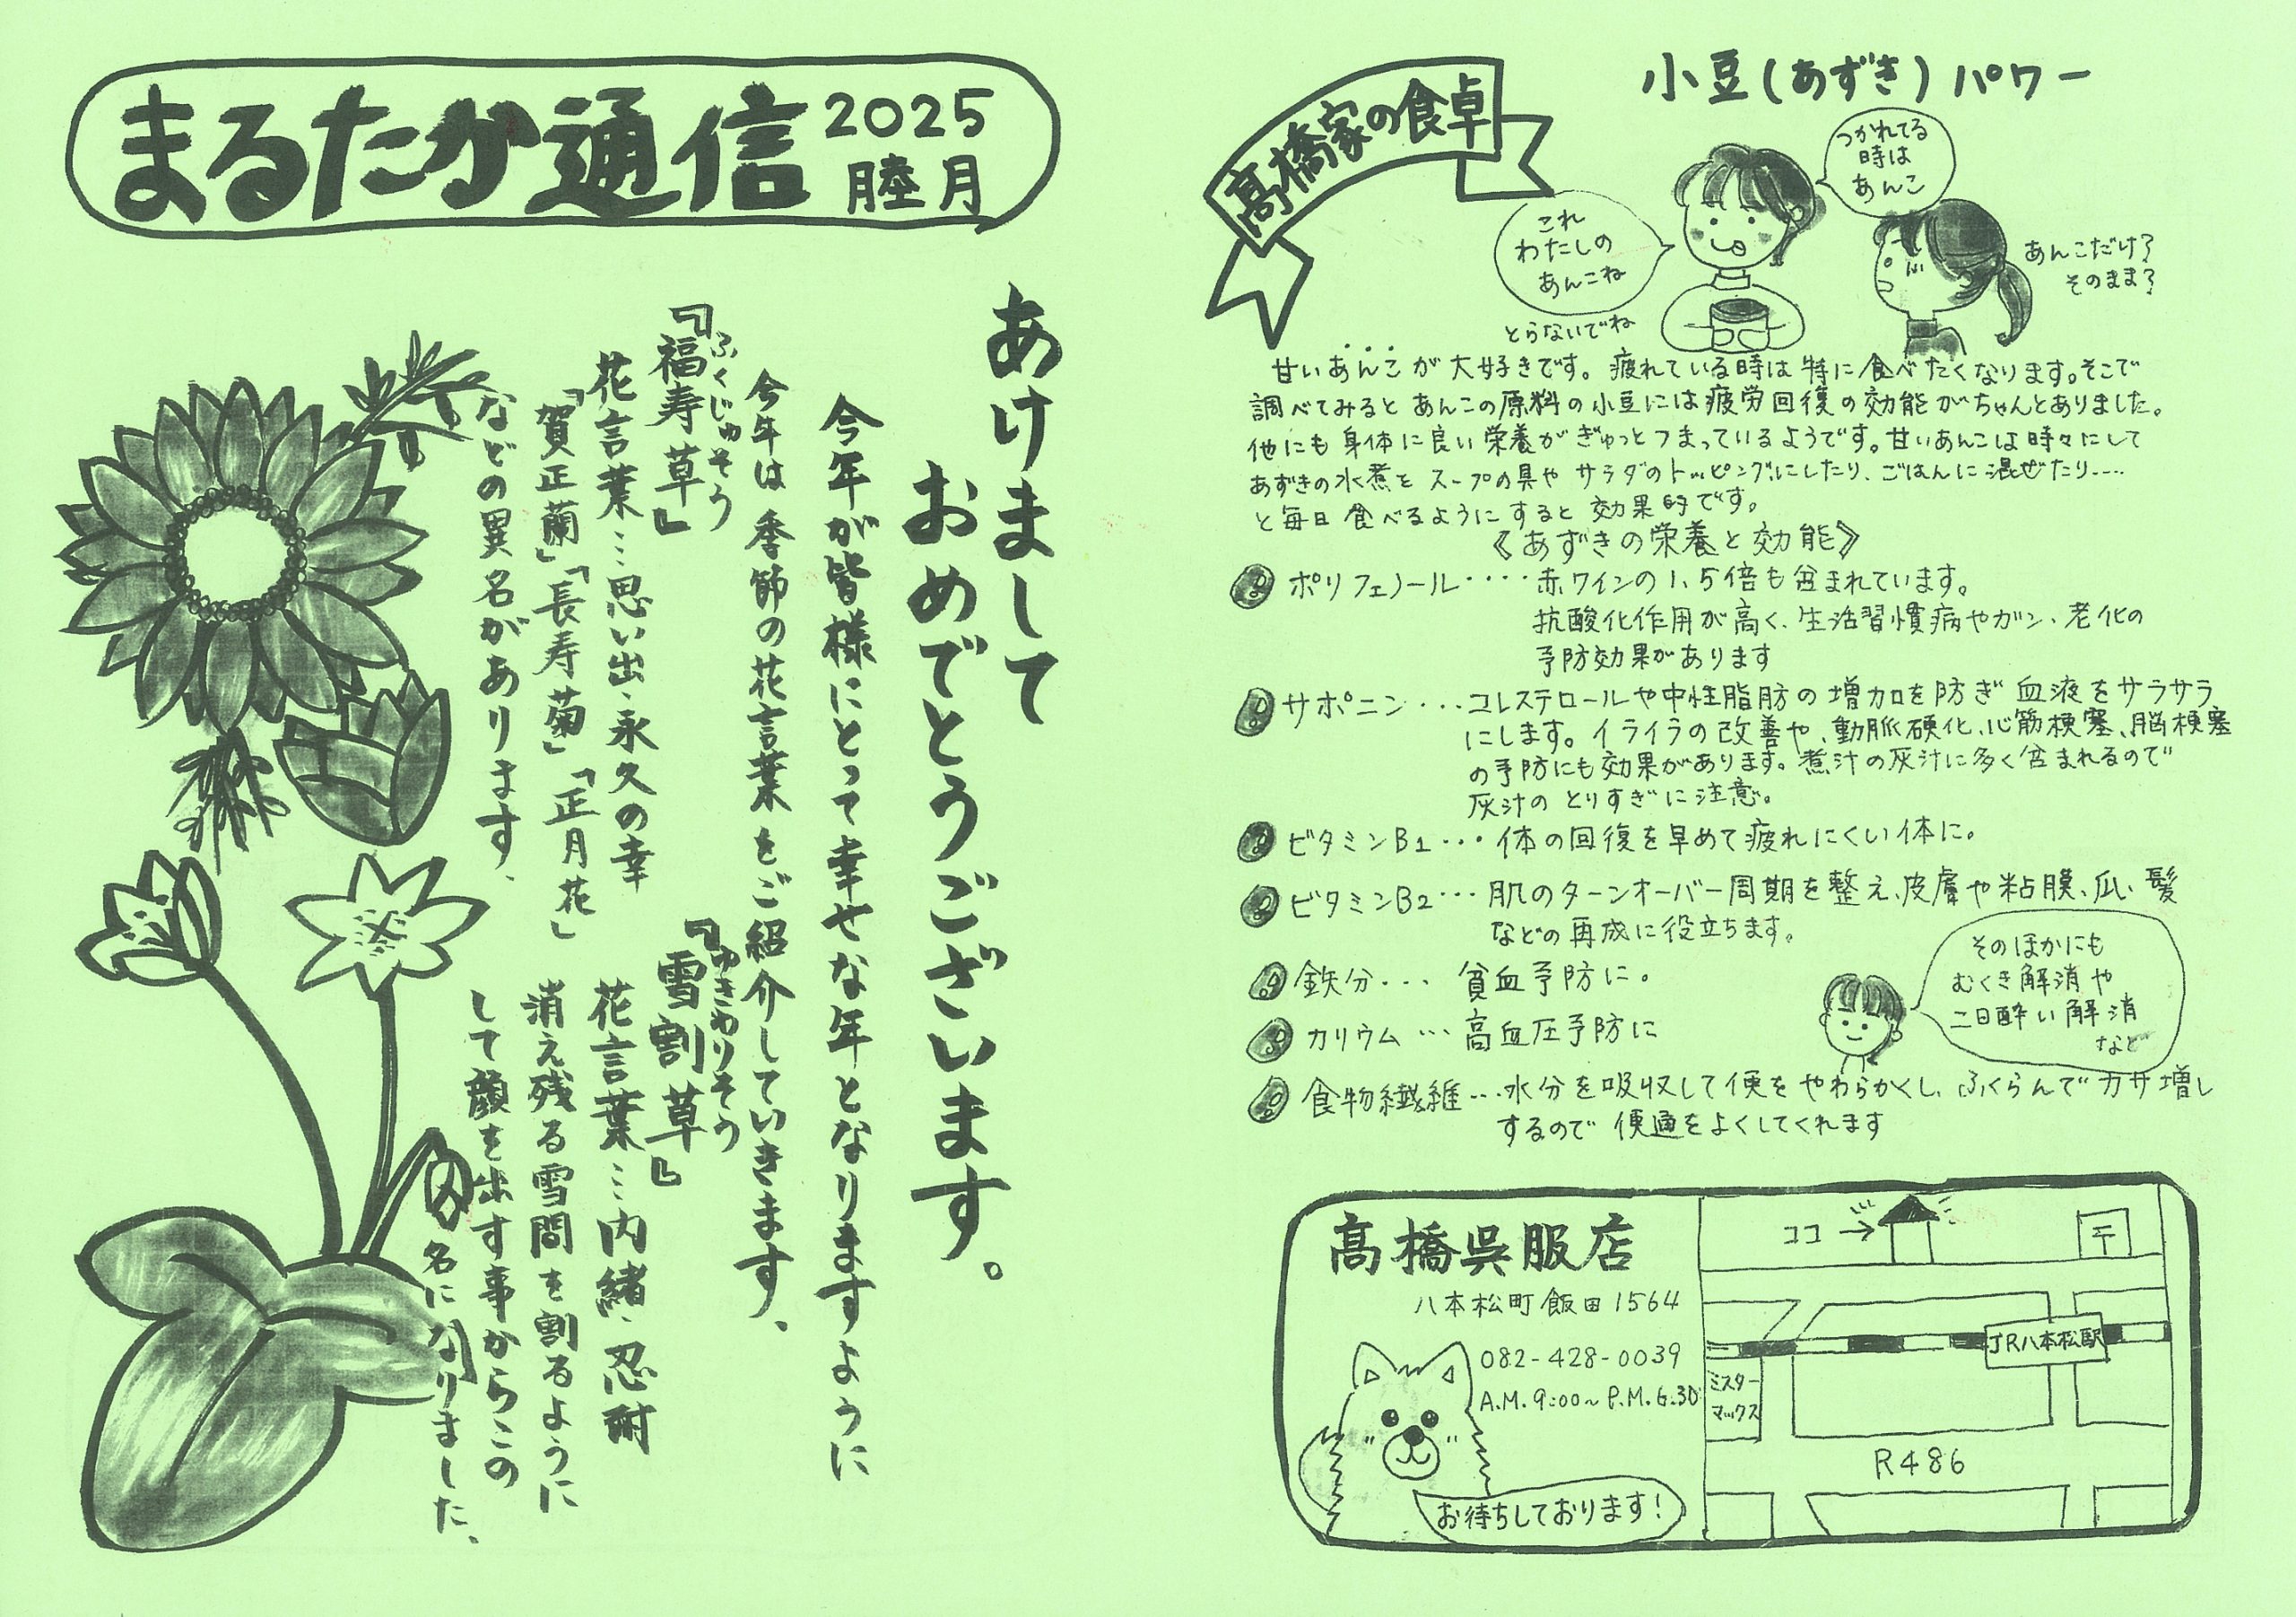 まるたか通信 2025 睦月
あけまして
おめでとうございます。
今年が皆様にとって幸せな年となりますように
今年は季節の花言葉をご紹介していきます、
『福寿草』
ふくじゅそう
花言葉…思い出、永久の幸
「賀正蘭」「長寿菊」「正月花」
などの異名があります、
『雪割草』
ゆきわりそう
花言葉…内緒、忍耐
消え残る雪間を割るように
して顔を出す事からこの
名になりました、
高橋家の食卓
小豆(あずき)パワー
つかれてる
時は
あんこ
これ
わたしの
あんこね
とらないでね
あんこだけ?
そのまま?
甘いあんこが大好きです。疲れている時は特に食べたくなります。そこで
調べてみるとあんこの原料の小豆には疲労回復の効能がちゃんとありました。
他にも身体に良い栄養がぎゅっとつまっているようです。甘いあんこは時々にして
あずきの水煮をスープの具やサラダのトッピングにしたり、ごはんに混ぜたり……
と毎日食べるようにすると効果的です。
《あずきの栄養と効能》
ポリフェノール····赤ワインの1.5倍も含まれています。
抗酸化作用が高く、生活習慣病やガン、老化の
予防効果があります
サポニン···コレステロールや中性脂肪の増加を防ぎ血液をサラサラ
にします。イライラの改善や、動脈硬化、心筋梗塞、脳梗塞
の予防にも効果があります。煮汁の灰汁に多く含まれるので
灰汁のとりすぎに注意。
ビタミンB1···体の回復を早めて疲れにくい体に。
ビタミンB2···肌のターンオーバー周期を整え、皮膚や粘膜、爪、髪
などの再成に役立ちます。
鉄分···貧血予防に。
カリウム···高血圧予防に
食物繊維···水分を吸収して便をやわらかくし、ふくらんでカサ増し
するので便通をよくしてくれます
そのほかにも
むくき解消や
二日酔い解消
など
髙橋呉服店
八本松町飯田1564
082-428-0039
A.M.9:00~P.M.6:30
お待ちしております!
ココ→
〒
JR八本松駅
ミスター
マックス
R486